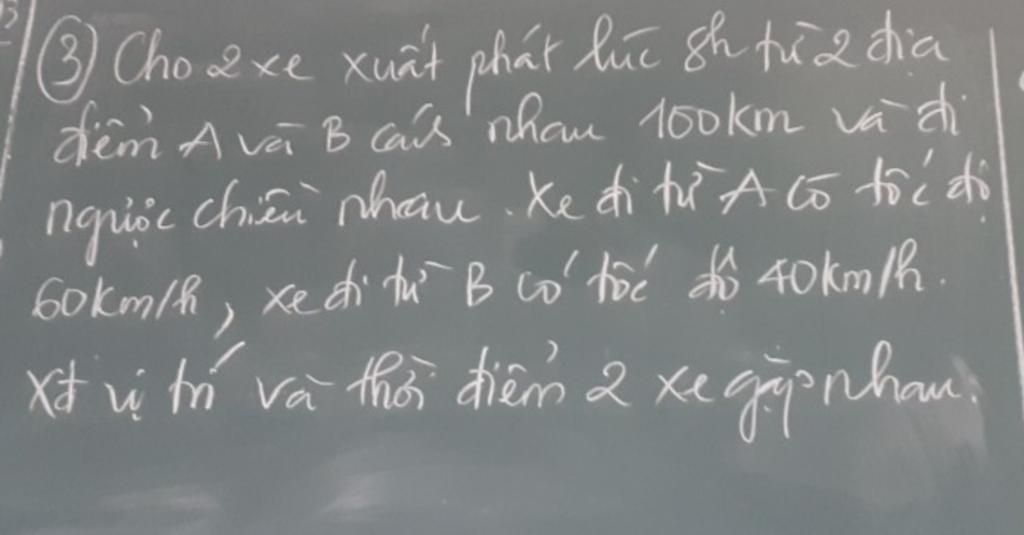 ③ Cho 2 xe xuất phát lúc 8h từ 2 địa
điểm A và B cách nhau 100km và đi
ngược chiều nhau. Xe đi từ A có tốc độ
60km/h, xe đi từ B có tốc độ 40km/h.
Xđ vị trí và thời điểm 2 xe gặp nhau.